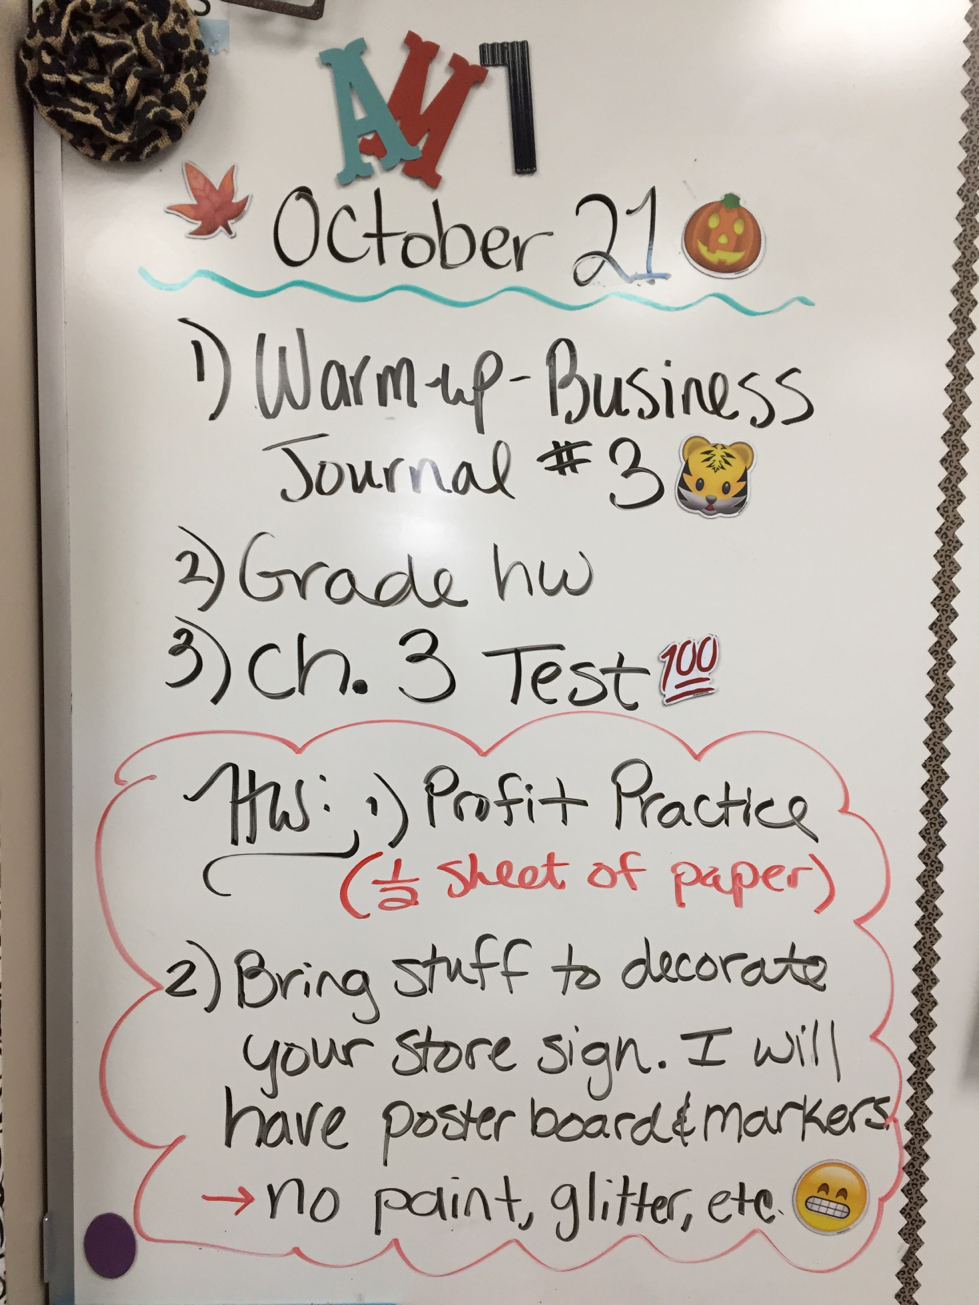 AM7
October 21
1) Warm-up - Business
Journal #3
2) Grade hw
3) Ch. 3 Test 💯
HW: 1) Profit Practice
(1/2 sheet of paper)
2) Bring stuff to decorate
your store sign. I will
have poster board & markers.
→ no paint, glitter, etc.